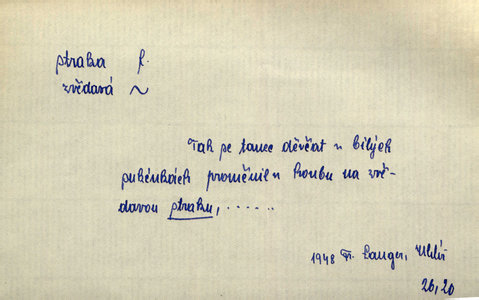 straka f.
zvědavá ~
Tak se tanec děvčat v bílých
sukénkách proměnil v honbu na zvě-
davou straku, ......
1948 Fr. Langer,
26,20